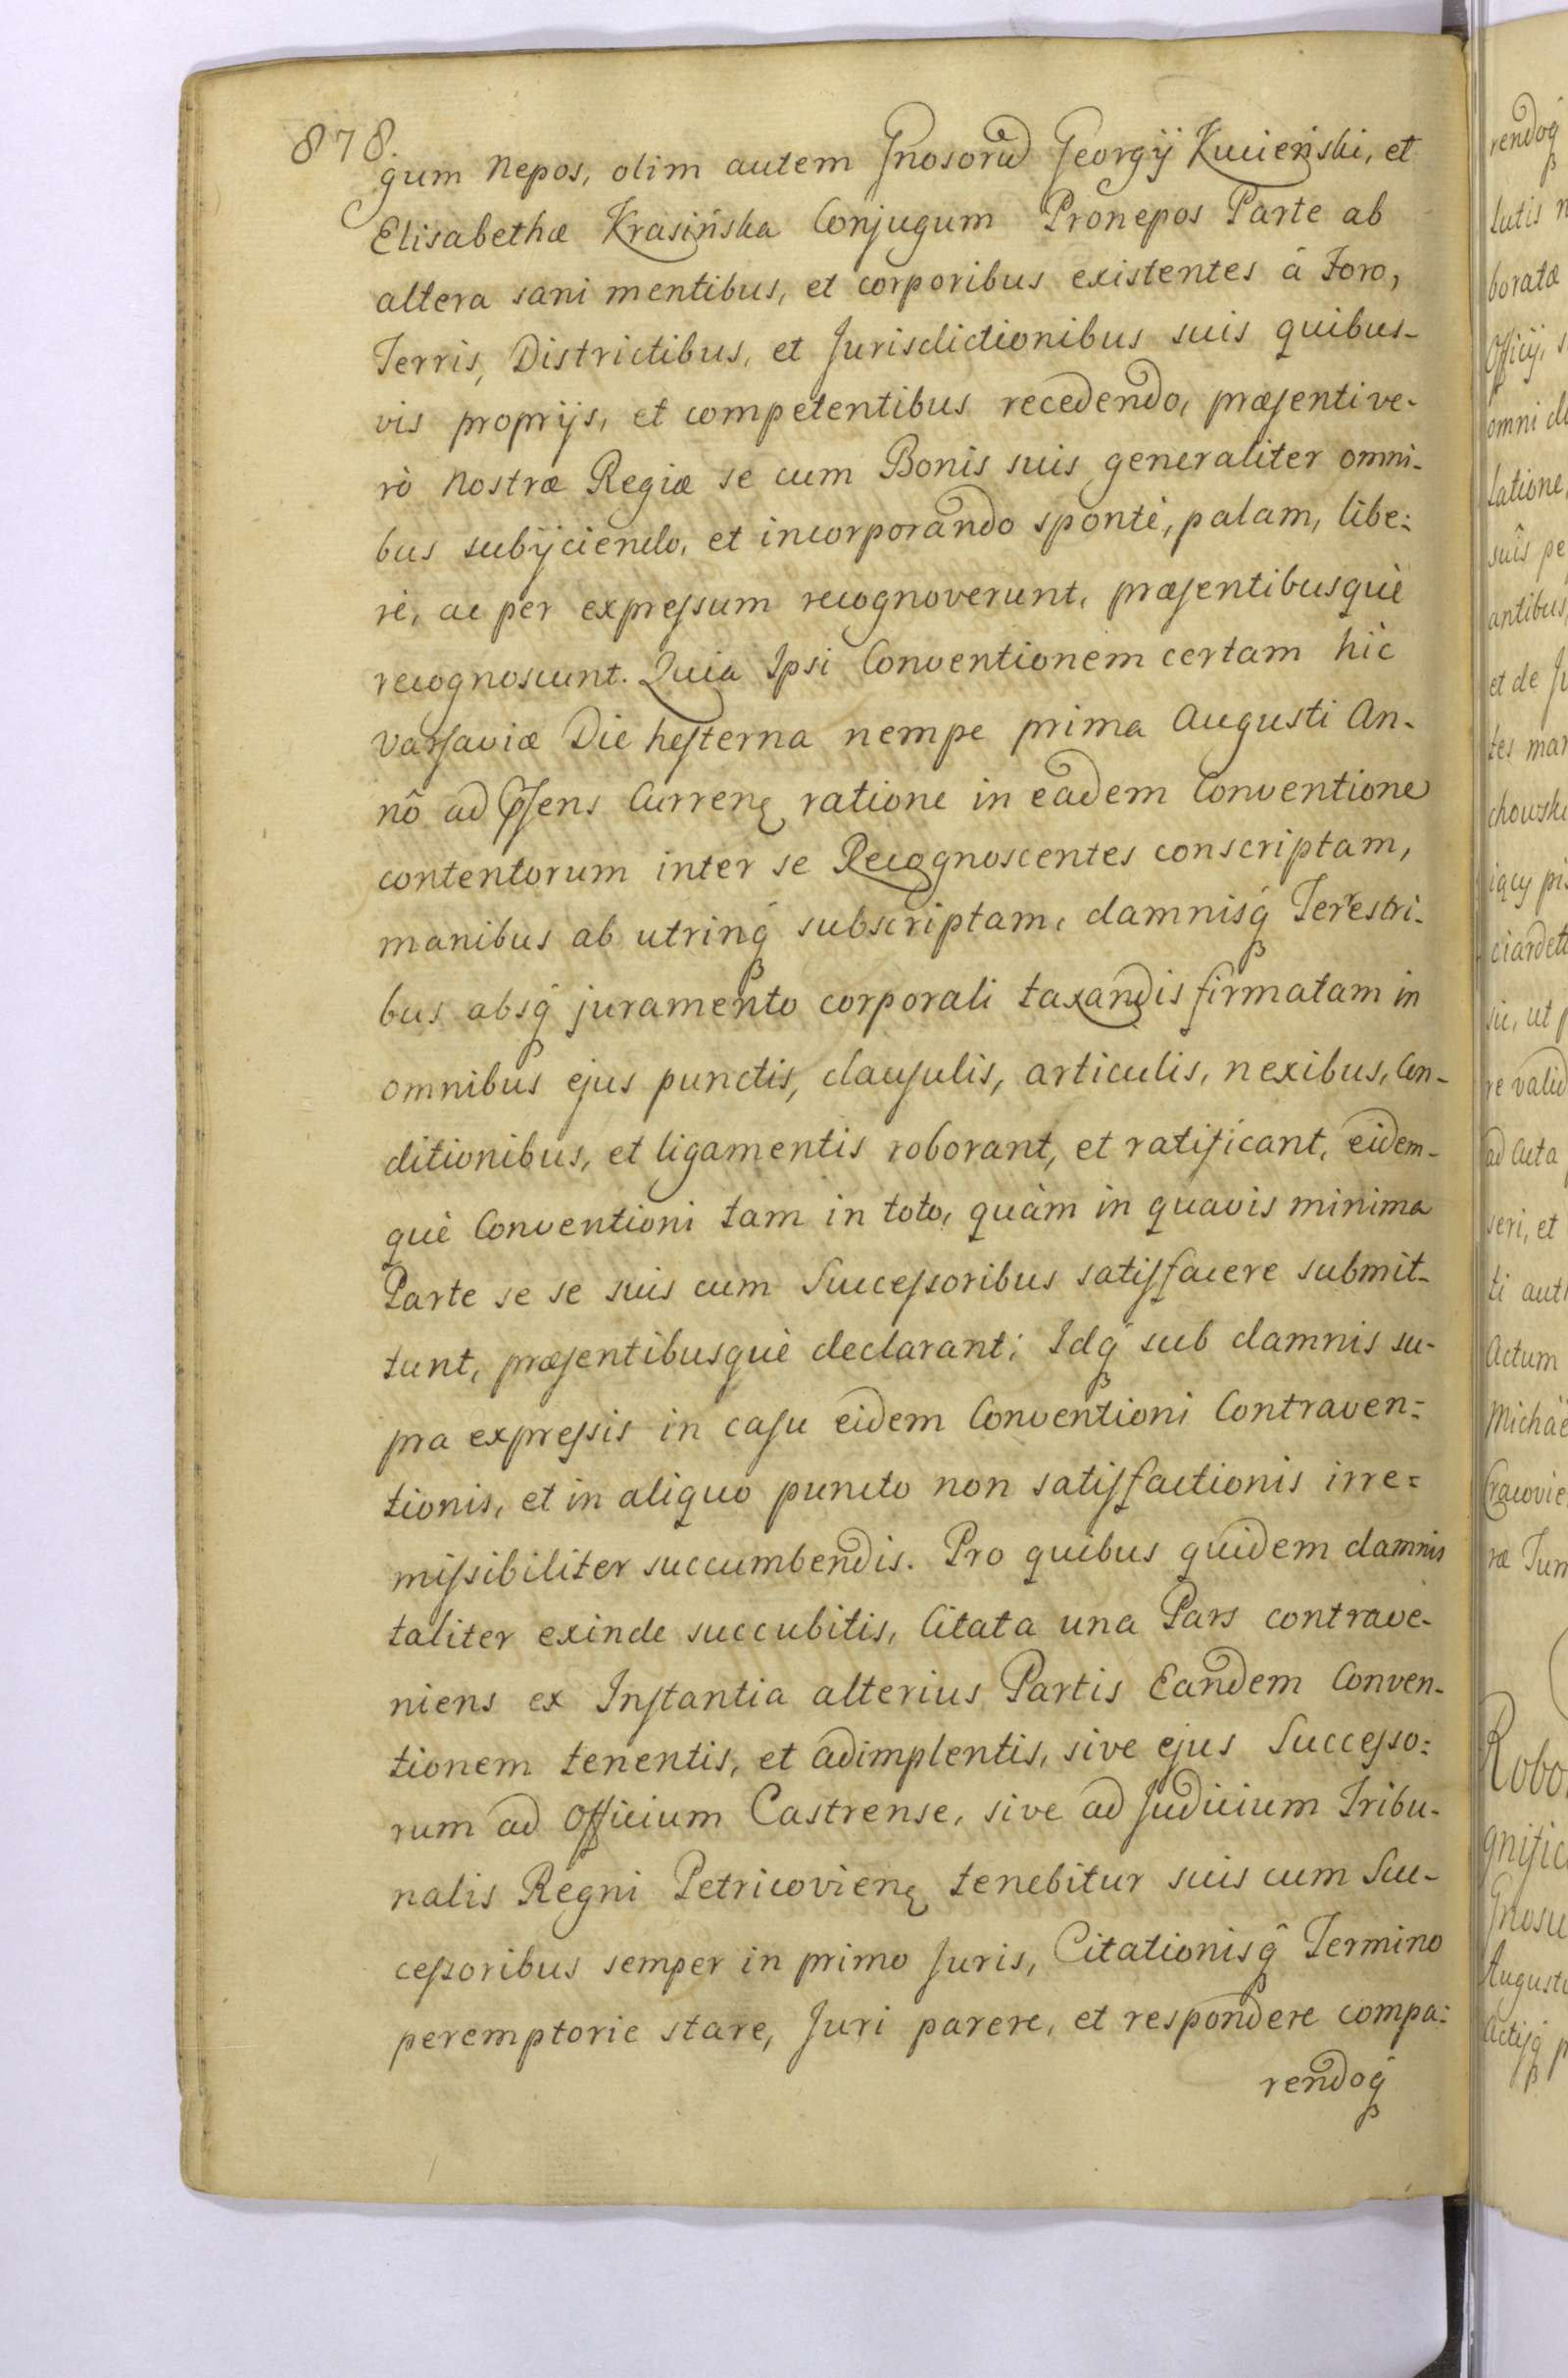 878.
gum Nepos, olim autem Gnosorū Georgij Kucieński, et
Elisabethæ Krasińska Conjugum Pronepos Parte ab
altera sani mentibus, et corporibus existentes á Foro,
Terris, Districtibus, et Jurisdictionibus suis quibus-
vis proprijs, et competentibus recedendo, præsenti ve-
rò Nostræ Regiæ se cum Bonis suis generaliter omni-
bus subijciendo, et incorporando spontè, palam, libe:
rè, ac per expressum recognoverunt, præsentibusquè
recognoscunt. Quia Ipsi Conventionem certam hìc
Varsaviæ Die hesterna nempe prima Augusti An-
nô ad Psens Currenę ratione in eadem Conventione
contentorum inter se Recognoscentes conscriptam,
manibus ab utrinq́ subscriptam, damnisq́ Terrestri-
bus absq́ juramento corporali taxandis firmatam in
omnibus ejus punctis, clausulis, articulis, nexibus, Con-
ditionibus, et ligamentis roborant, et ratificant, eidem-
què Conventioni tam in toto, quàm in quavis minima
Parte se se suis cum Successoribus satisfacere submit-
tunt, præsentibusquè declarant; Idq́ sub damnis su-
pra expressis in casu eidem Conventioni Contraven:
tionis, et in aliquo puncto non satisfactionis irre=
missibiliter succumbendis. Pro quibus quidem damnis
taliter exinde succubitis, Citata una Pars contrave-
niens ex Instantia alterius Partis Eandem Conven-
tionem tenentis, et adimplentis, sive ejus Successo:
rum ad Officium Castrense, sive ad Judicium Tribu-
nalis Regni Petricovienę tenebitur suis cum Suc-
cessoribus semper in primo Juris, Citationisq́ Termino
peremptorie stare, Juri parere, et respondere compa:
rendoq́